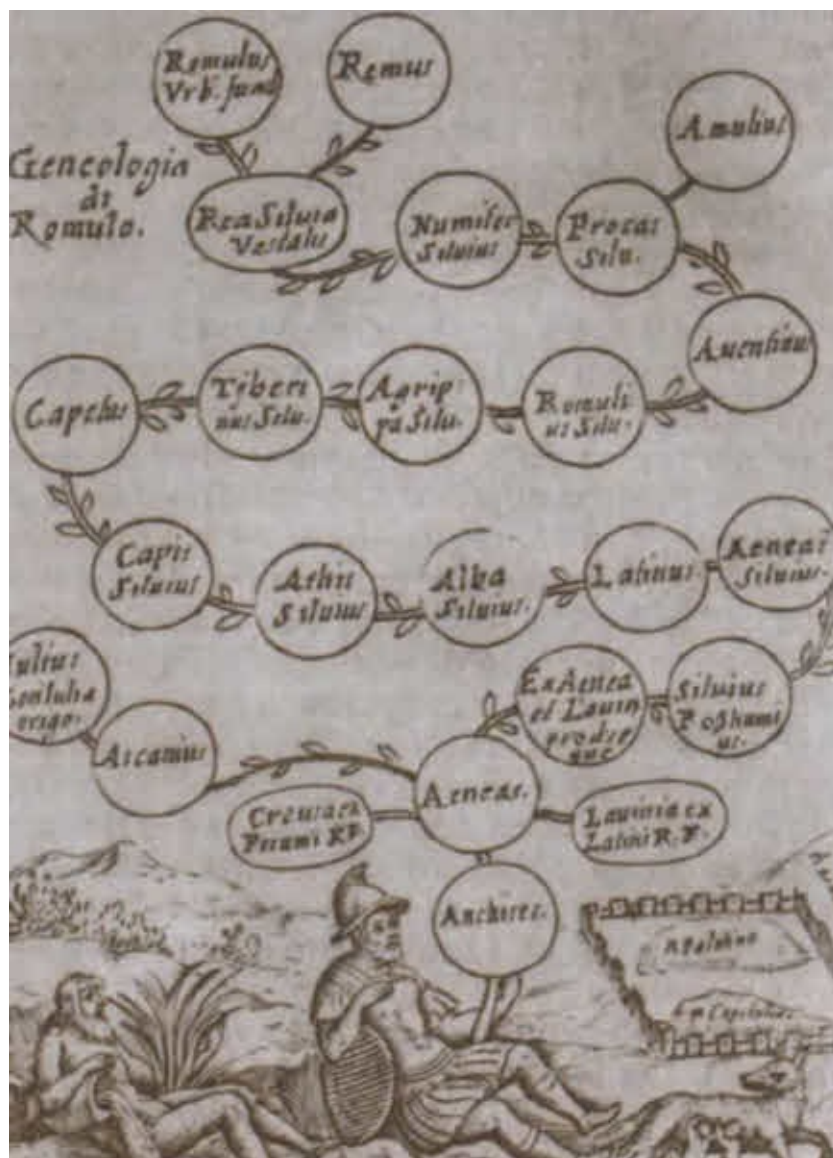 Romulus
Vrb. fund
Remus
Amulius
Geneologia
di
Romulo.
Rea Siluia
Vestalis
Numitor
Siluius
Procas
Silu.
Auentinus
Capetus
Tyberi
nus Silu.
Agrip:
pa Silu.
Romuli
us Silu.
Capis
Siluius
Athis
Siluius
Alba
Siluius.
Latinus.
Aeneas
Siluius.
Iulius
origo.
Ascanius
Ex Aenea
et Lauin
Siluius
Posthumi
us.
Aeneas.
Creusa ex
R F.
Lauinia ex
Latini R. F.
Anchises.
Palatino
m Capitolino